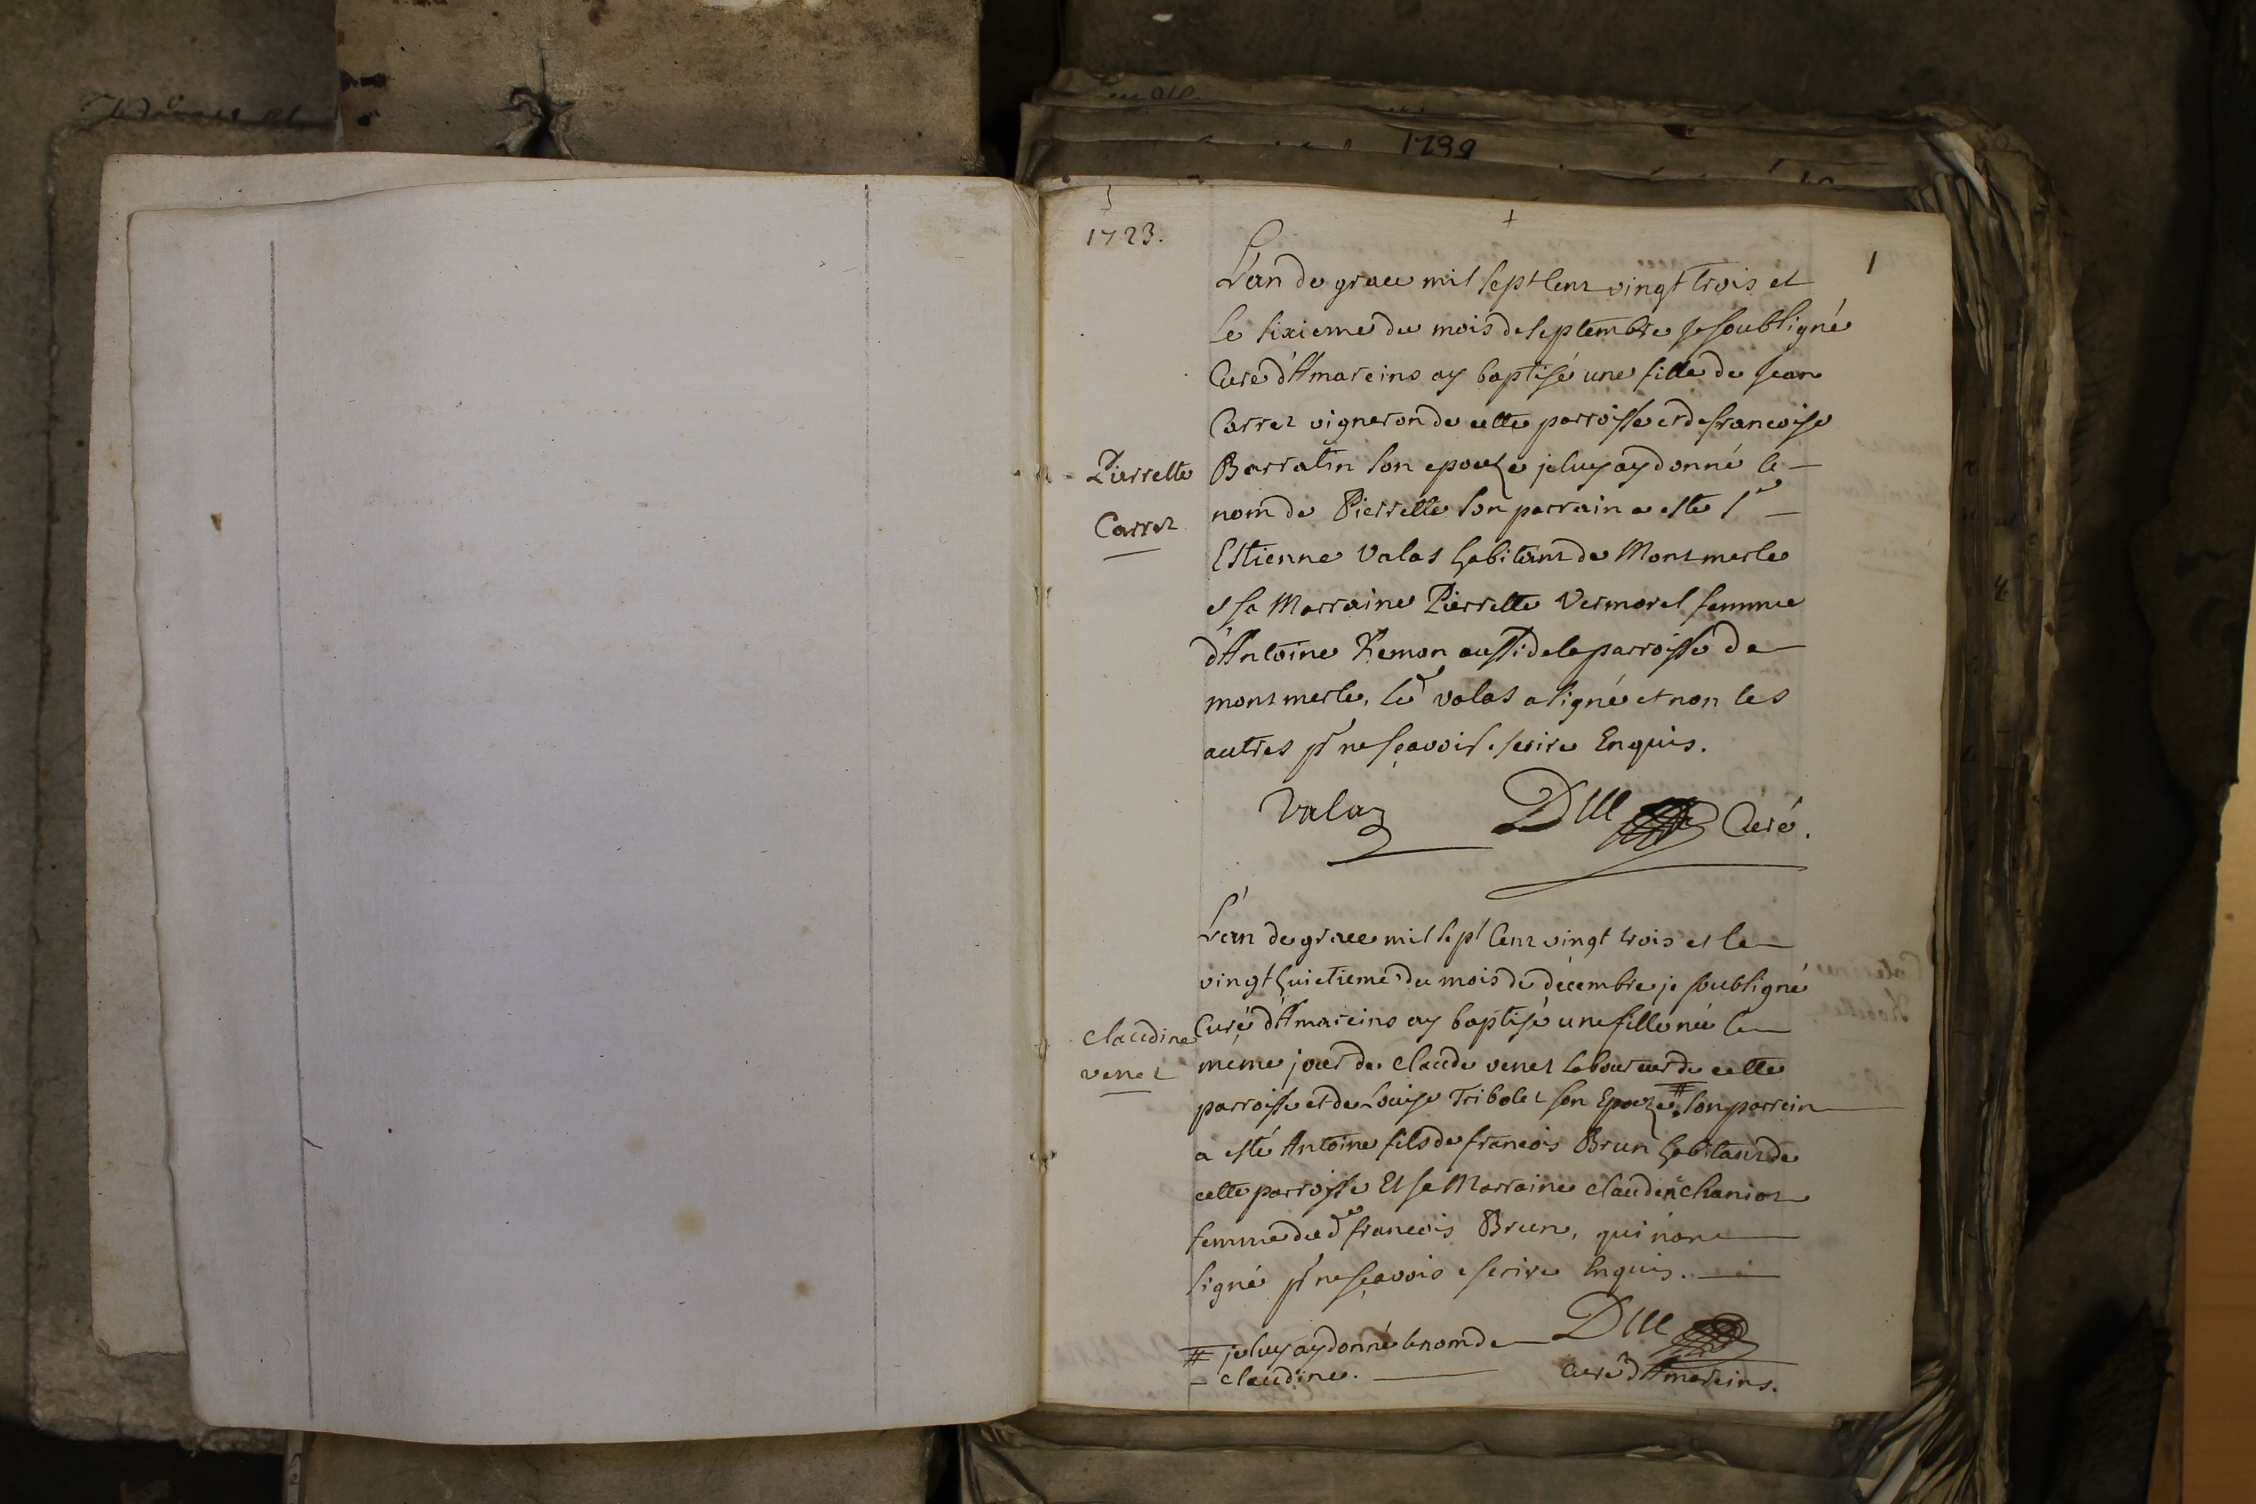 1739
1723.
1
L'an de grace mil sept cent vingt trois et
le sixieme du mois de septembre je soubsigné
Curé d'Amareins ay baptisé une fille de Jean
Carret vigneron de cette parroisse et de francoise
Pierrette
Carret
Barratin son epouze je luy ay donné le
nom de Pierrette son parrain a esté Sr
Estienne Valas habitant de Montmerle
et sa Marraine Pierrette Vermorel femme
d'Antoine Remon aussi de la parroisse de
montmerle, led valas a signé et non les
autres pr ne sçavoir escrire Enquis.
Valas
Dutt Curé.
L'an de grace mil sept cent vingt trois et le
vingt huictieme du mois de décembre je soubsigné
claudine
venet
Curé d'Amareins ay baptisé une fille née le
même jour de claude venet laboureur de cette
parroisse et de Louise Tribolet son Epouze # son parrein
a esté Antoine fils de francois Brun habitant de
cette parroisse Et sa Marraine claudine chaniot
femme dud francois Brun, qui n'ont
signé pr ne sçavoir escrire Enquis.
# je luy ay donné le nom de
claudine.
curé d'Amareins.